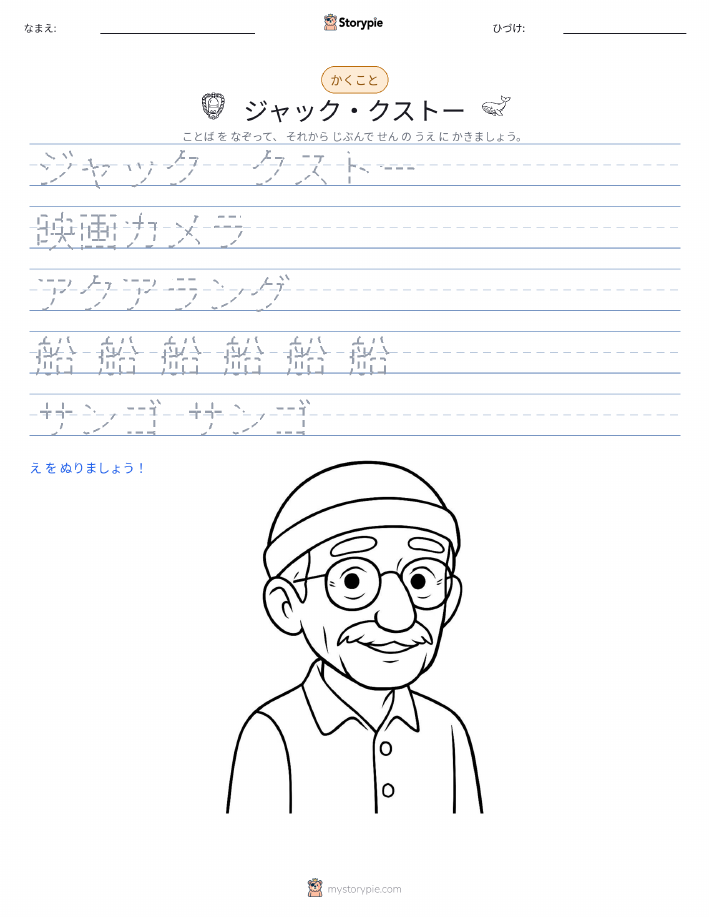 なまえ:
Storypie
ひづけ:
かくこと
ジャック・クストー
ことば を なぞって、 それから じぶんで せん の うえ に かきましょう。
ジャック クストー
映画カメラ
アクアラング
船 船 船 船 船 船
サンゴ サンゴ
え を ぬりましょう！
mystorypie.com